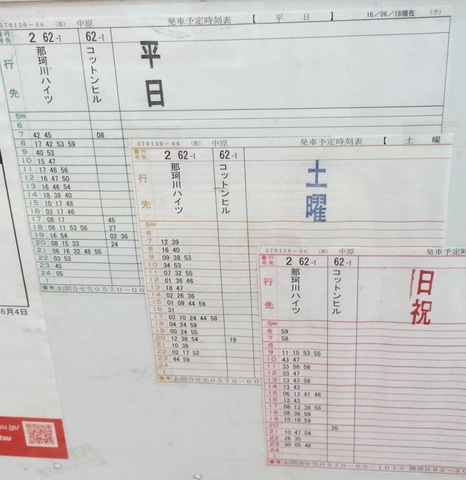 570130-06 (那) 中原 発車予定時刻表 【 平 日 】 16/06/18現在 (予)
行先番号 2 62-1 62-1
行先 那珂川ハイツ コットンヒル
平日
5時
6
7 42 45 08
8 17 42 53 59
9 40 53
10 15 47
11 17 46 56
12 17 40 47
13 16 46 54
14 18 38 40
15 10 16 47
16 03 17 46
17 08 17 45
18 06 11 53 56 27
19 16 54 02 36
20 08 15 33 24
21 06 16 32 48 55
22 03 53
23 45
24 05
備考 お問合せ先0570-00
570130-06 (那) 中原 発車予定時刻表 【 土 曜
行先番号 2 62-1 62-1
行先 那珂川ハイツ コットンヒル
土曜
5時
6
7 12 39
8 16 40
9 09 38 53
10 34 53
11 07 32 55
12 01 36 46
13 18 47
14 02 26 36
15 01 09 44 56
16 31
17 03 10 24 44 58
18 04 24 59
19 00 24 55
20 12 38 54 19
21 10 36
22 02 17 52
23 44 59
24
備考 お問合せ先0570-00
570130-06 (那) 中原 発車予定
行先番号 2 62-1 62-1
行先 那珂川ハイツ コットンヒル
日祝
5時
6 59
7 58
8
9 11 15 53 55
10 43 47
11 33 56 58
12 33 47
13 13 43 56
14 13 43
15 06 13 41 46
16 13 43
17 08 13 38 56
18 09 36 39 56
19 10 03 18 59
20 20
21 10 47 54
22 26 35
23 00 05 46
24
備考 お問合せ先0570-00-1010 携帯092-3
6月4日
su.jp/
tsu